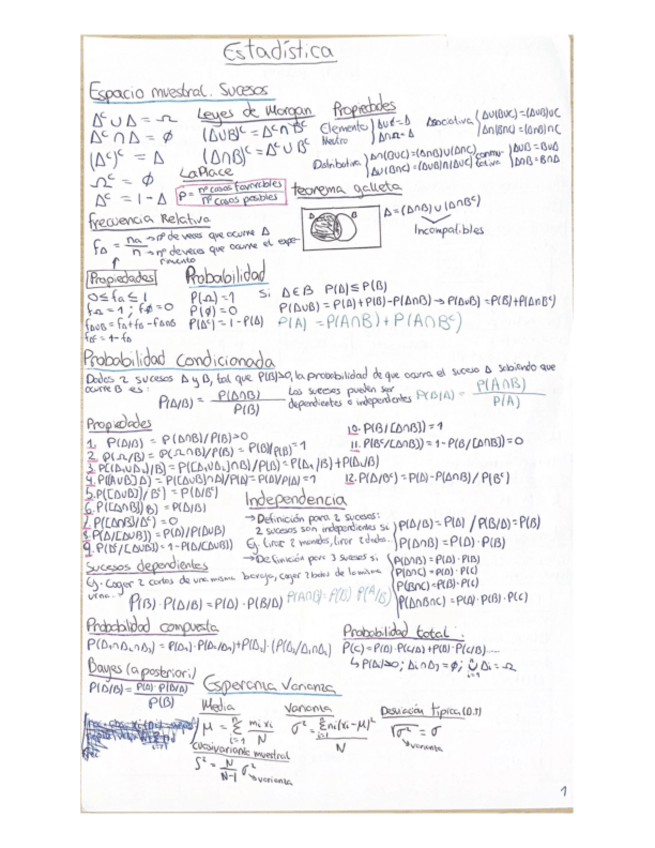 Estadística
Espacio muestral. Sucesos
Δᶜ ∪ Δ = Ω
Δᶜ ∩ Δ = ∅
(Δᶜ)ᶜ = Δ
Ωᶜ = ∅
Δᶜ = 1 - Δ
Leyes de Morgan
(Δ∪B)ᶜ = Δᶜ ∩ Bᶜ
(Δ∩B)ᶜ = Δᶜ ∪ Bᶜ
LaPlace
P = nº casos favorables / nº casos posibles
Propiedades
Elemento Neutro { Δ∪∅=Δ
Δ∩Ω=Δ
Asociativa { Δ∪(B∪C)=(Δ∪B)∪C
Δ∩(B∩C)=(Δ∩B)∩C
Distributiva { Δ∩(B∪C)=(Δ∩B)∪(Δ∩C)
Δ∪(B∩C)=(Δ∪B)∩(Δ∪C)
conmutativa { Δ∪B=B∪Δ
Δ∩B=B∩Δ
teorema galleta
Δ B
Δ=(Δ∩B)∪(Δ∩Bᶜ)
Incompatibles
frecuencia Relativa
fΔ = na / n → nº de veces que ocurre Δ
→ nº de veces que ocurre el experimento
Propiedades
0≤fa≤1
fΩ=1 ; f∅=0
fΔ∪B=fΔ+fB-fΔ∩B
Probabilidad
P(Ω)=1
P(∅)=0
P(Δᶜ)=1-P(Δ)
Si Δ∈B P(Δ)≤P(B)
P(Δ∪B)=P(Δ)+P(B)-P(Δ∩B)→P(Δ∪B)=P(B)+P(Δ∩Bᶜ)
P(A)=P(A∩B)+P(A∩Bᶜ)
Probabilidad condicionada
Dados 2 sucesos Δ y B, tal que P(B)>0, la probabilidad de que ocurra el suceso Δ sabiendo que
ocurre B es:
P(Δ/B) = P(Δ∩B) / P(B)
Los sucesos pueden ser
dependientes o independientes
P(B/A) = P(A∩B) / P(A)
Propiedades
1. P(Δ/B) = P(Δ∩B)/P(B)>0
2. P(Ω/B) = P(Ω∩B)/P(B) = P(B)/P(B)=1
3. P[(Δ₁∪Δ₂)/B) = P[(Δ₁∪Δ₂)∩B)/P(B) = P(Δ₁/B)+P(Δ₂/B)
4. P(Δ∪B/Δ) = P[(Δ∪B)∩Δ)/P(Δ) = P(Δ)/P(Δ)=1
5. P([Δ∪B]/Bᶜ) = P(Δ/Bᶜ)
6. P([Δ∩B]/B) = P(Δ/B)
7. P([Δ∩B]/Bᶜ) = 0
8. P(Δ/[Δ∪B]) = P(Δ)/P(Δ∪B)
9. P(Bᶜ/[Δ∪B]) = 1-P(B/[Δ∪B])
10. P(B/[Δ∩B]) = 1
11. P(Bᶜ/[Δ∩B]) = 1-P(B/[Δ∩B])=0
12. P(Δ/Bᶜ) = P(Δ)-P(Δ∩B)/P(Bᶜ)
Independencia
→ Definición para 2 sucesos:
2 sucesos son independientes si
Ej tirar 2 monedas, tirar 2 dados.
{ P(Δ/B)=P(Δ) / P(B/Δ)=P(B)
P(Δ∩B)=P(Δ)·P(B)
→ Definición para 3 sucesos si:
{ P(Δ∩B)=P(Δ)·P(B)
P(Δ∩C)=P(Δ)·P(C)
P(B∩C)=P(B)·P(C)
P(Δ∩B∩C)=P(Δ)·P(B)·P(C)
Sucesos dependientes
Ej. Coger 2 cartas de una misma baraja, coger 2 bolas de la misma
urna...
P(B)·P(Δ/B)=P(Δ)·P(B/Δ)
P(A∩B)=P(B)·P(A/B)
Probabilidad compuesta
Probabilidad total:
P(C)=P(Δ)·P(C/Δ)+P(B)·P(C/B)......
↳ P(Δi)>0; Δi∩Δj=∅; ∪Δi=Ω
Bayes (a posteriori)
P(Δ/B) = P(Δ)·P(B/Δ) / P(B)
Esperanza Varianza
Media
μ = Σ mi xi / N
Varianza
σ² = Σni(xi-μ)² / N
Desviación típica (D.T)
√σ² = σ
varianza
cuasivarianza muestral
S² = N / N-1 σ²
varianza
1